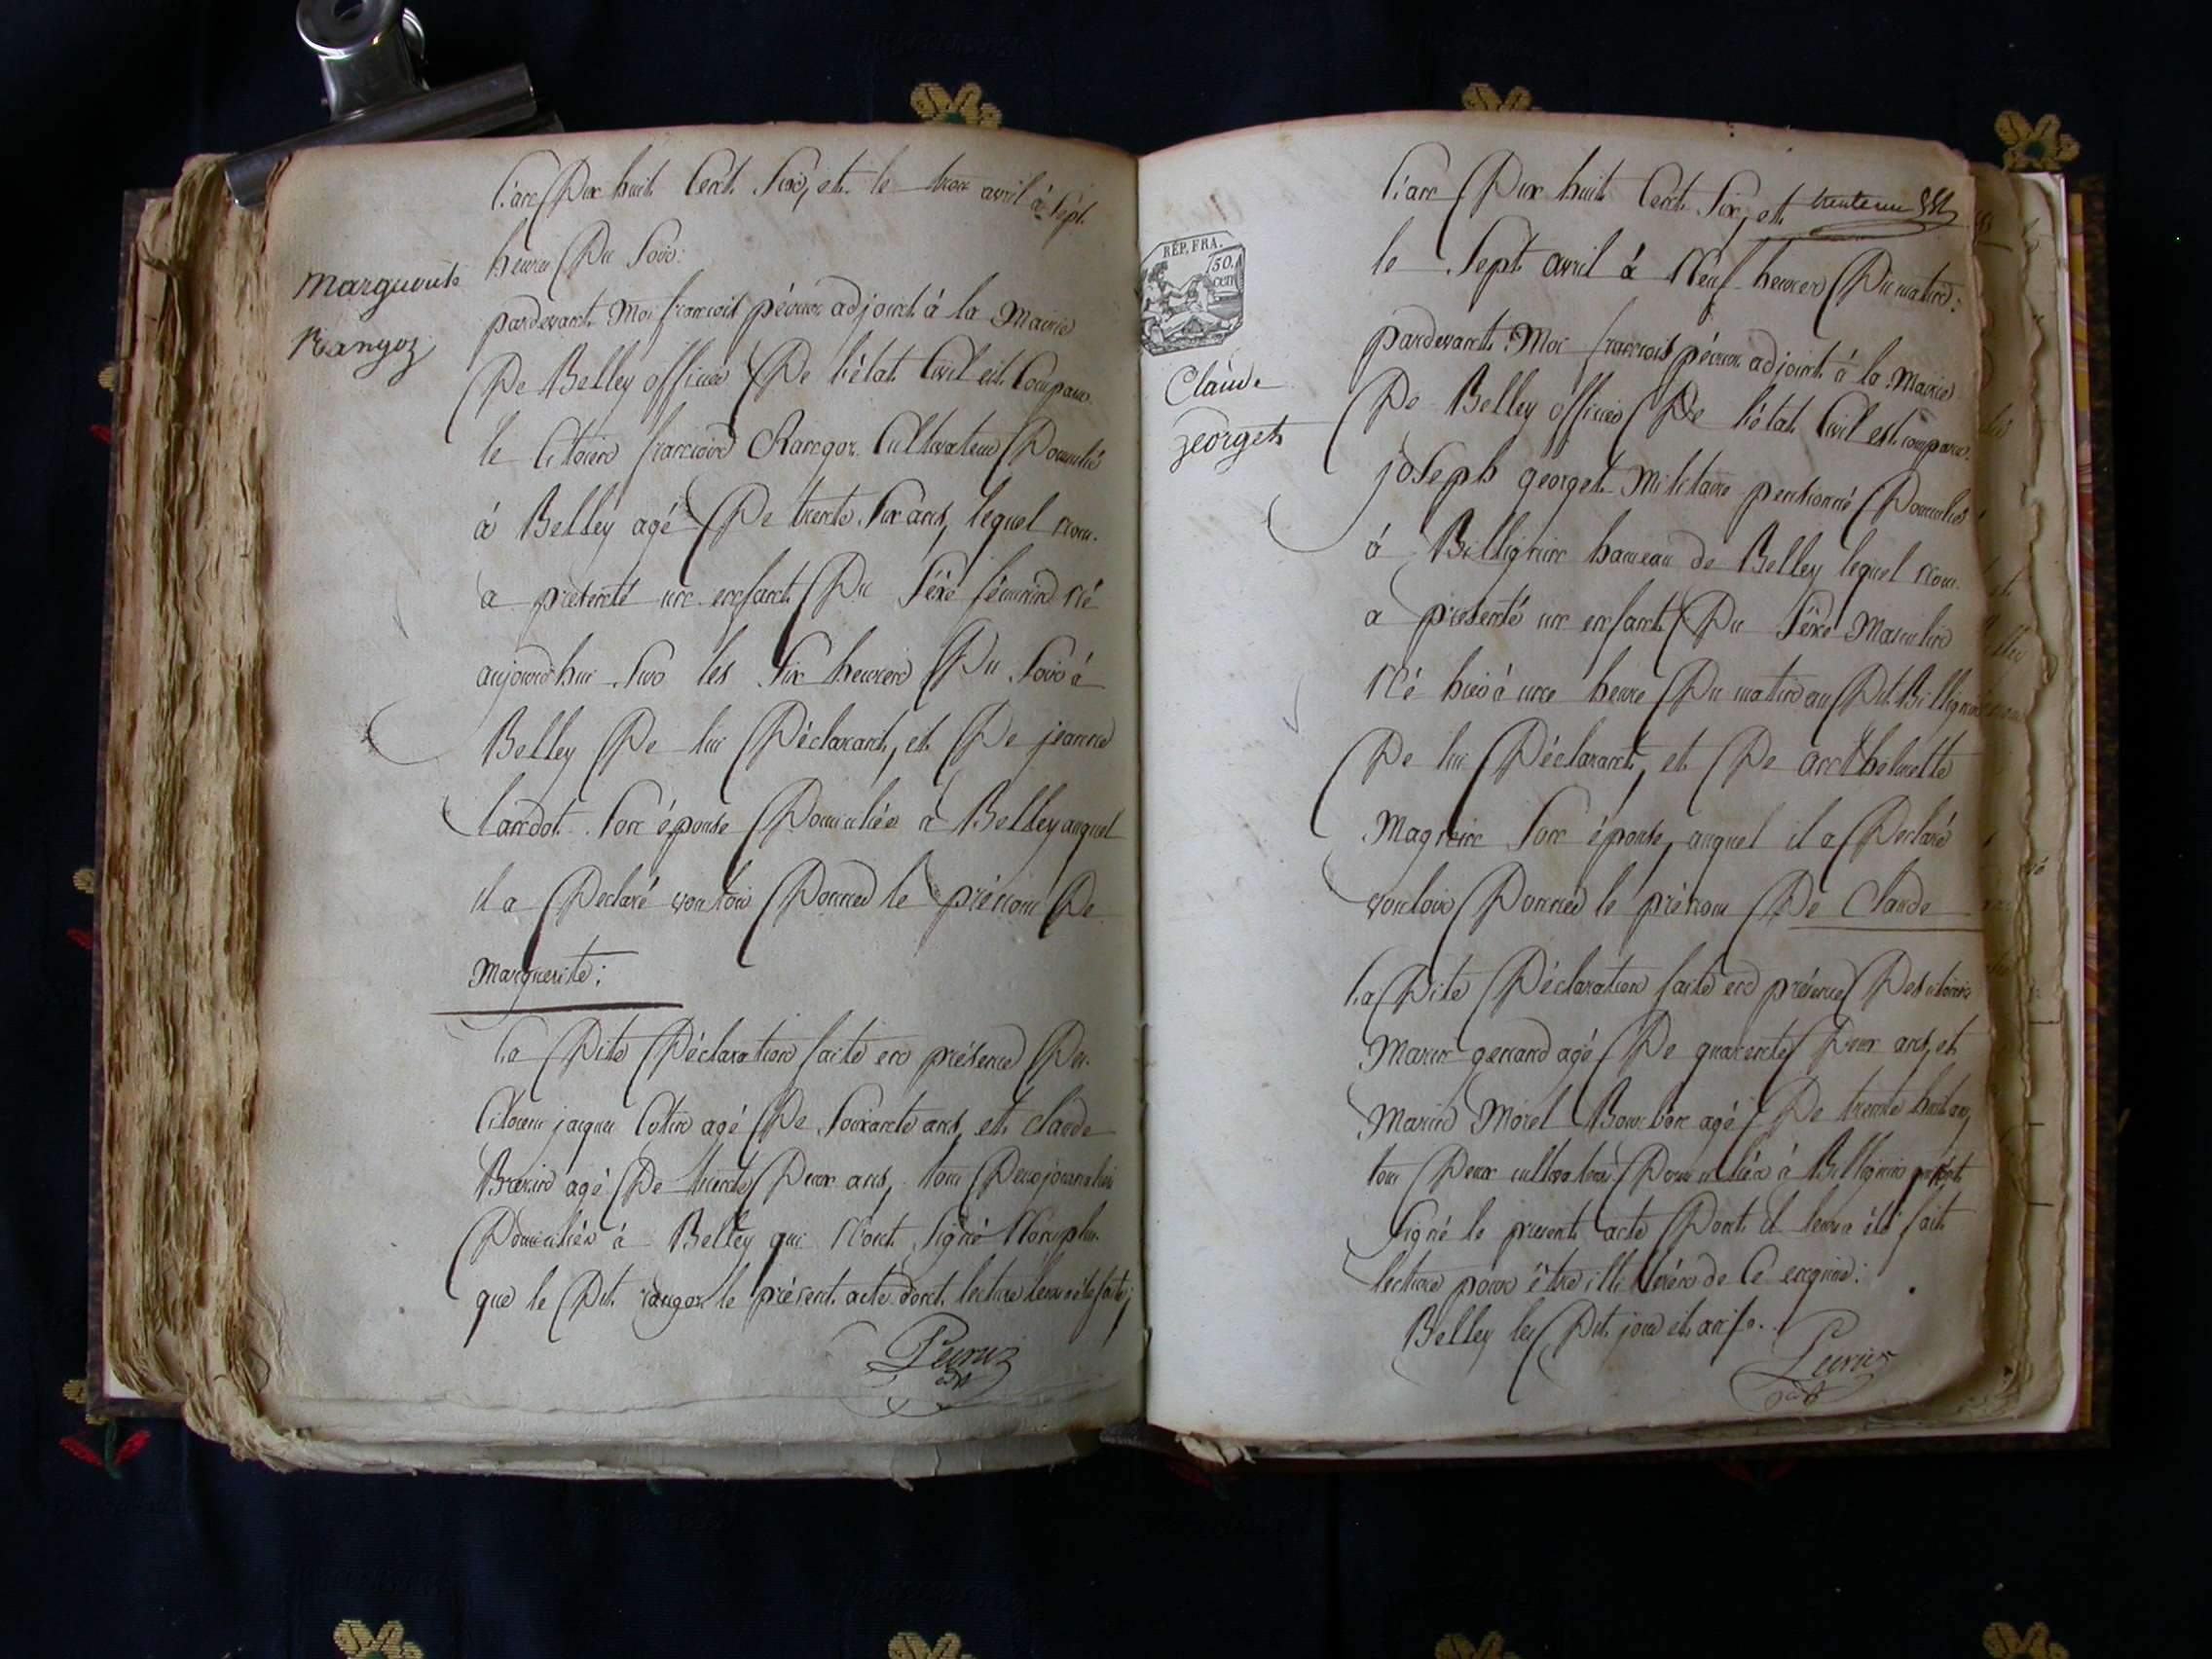 Marguerite
Rangoz
L'an Dix huit Cent Six, et le trois avril à Sept
heures Du Soir:
pardevant Moi françois pévrier adjoint à la Mairie
De Belley officier De l'état Civil est Comparu
le Citoien françois Rangoz Cultivateur Domicilié
à Belley agé De trente Six ans, lequel nous
a présenté un enfant Du Séxe féminin Né
aujourd'hui Sur les Six heures Du Soir à
Belley De lui Déclarant, et De jeanne
landot Son épouse Domiciliée à Belley auquel
il a Déclaré vouloir Donner le prénom De
Marguerite:
La Dite Déclaration faite en présence Des
Citoiens jacques Cotin agé De Soixante ans, et claude
agé De trente Deux ans, tous Deux journaliers
Domiciliés à Belley qui N'ont Signé Non plus
que le Dit rangoz le présent acte dont lecture leur a été faite;
RÉP. FRA.
50.
cent
Claude
georget
trente un
L'an Dix huit Cent Six, et
le Sept avril à Neuf heures Du matin:
pardevant Moi françois pévrier adjoint à la Mairie
De Belley officier De l'état Civil est comparu
joseph georget Militaire pentionné Domicilié
à Billignin hameau de Belley lequel Nous
a présenté un enfant Du Séxe Masculin
Né hier à une heure Du matin au Dit Billignin
De lui Déclarant, et De anthelmette
Magnin Son épouse, auquel il a Déclaré
vouloir Donner le prénom De Claude
La Dite Déclaration faite en présence Des citoiens
agé De quarente Deux ans, et
Marin Morel Bourbon agé De trente huit ans
tous Deux cultivateurs Domiciliés à Billignin
Signé le présent acte Dont il leur a été fait
lecture pour être illitérés de Ce enquis:
Belley les Dit jour et an